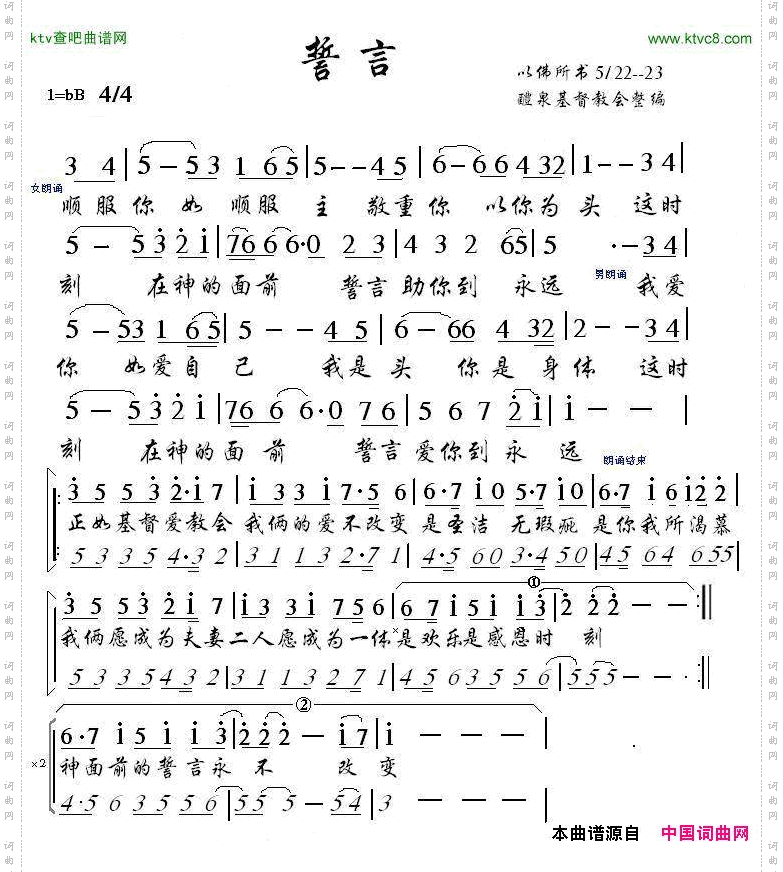 ktv查吧曲谱网
www.ktvc8.com
誓言
以佛所书 5/22--23
醴泉基督教会整编
1=bB 4/4
3 4 | 5 – 5 3 1 6 5 | 5 – – 4 5 | 6 – 6 6 4 32 | 1 – – 3 4 |
女朗诵
顺服你如顺服主敬重你以你为头这时
5 – 5 3 2 1 | 76 6 6·0 2 3 | 4 3 2 65 | 5 · – 3 4 |
刻在神的面前誓言助你到永远 男朗诵 我爱
5 – 53 1 6 5 | 5 – – 4 5 | 6 – 66 4 32 | 2 – – 3 4 |
你如爱自己我是头你是身体这时
5 – 5 3 2 1 | 76 6 6·0 7 6 | 5 6 7 2 1 | 1 – – |
刻在神的面前誓言爱你到永远
朗诵结束
3 5 5 3 2·1 7 | 1 3 3 1 7·5 6 | 6·7 1 0 5·7 1 0 | 6·7 1 6 12 2 |
正如基督爱教会我俩的爱不改变是圣洁无瑕疵是你我所渴慕
5 3 3 5 4·3 2 | 3 1 1 3 2·7 1 | 4·5 6 0 3·4 5 0 | 4 5 6 4 6 55 |
①
3 5 5 3 2 1 7 | 1 3 3 1 7 5 6 | 6 7 1 5 1 1 3 | 2 2 2 – :||
我俩愿成为夫妻二人愿成为一体是欢乐是感恩时刻
5 3 3 5 4 3 2 | 3 1 1 3 2 7 1 | 4 5 6 3 5 5 6 | 5 5 5 – :||
②
6·7 1 5 1 1 3 | 2 2 2 – 1 7 | 1 – – – |
×2 神面前的誓言永不改变
4·5 6 3 5 5 6 | 5 5 5 – 5 4 | 3 – – – |
本曲谱源自 中国词曲网